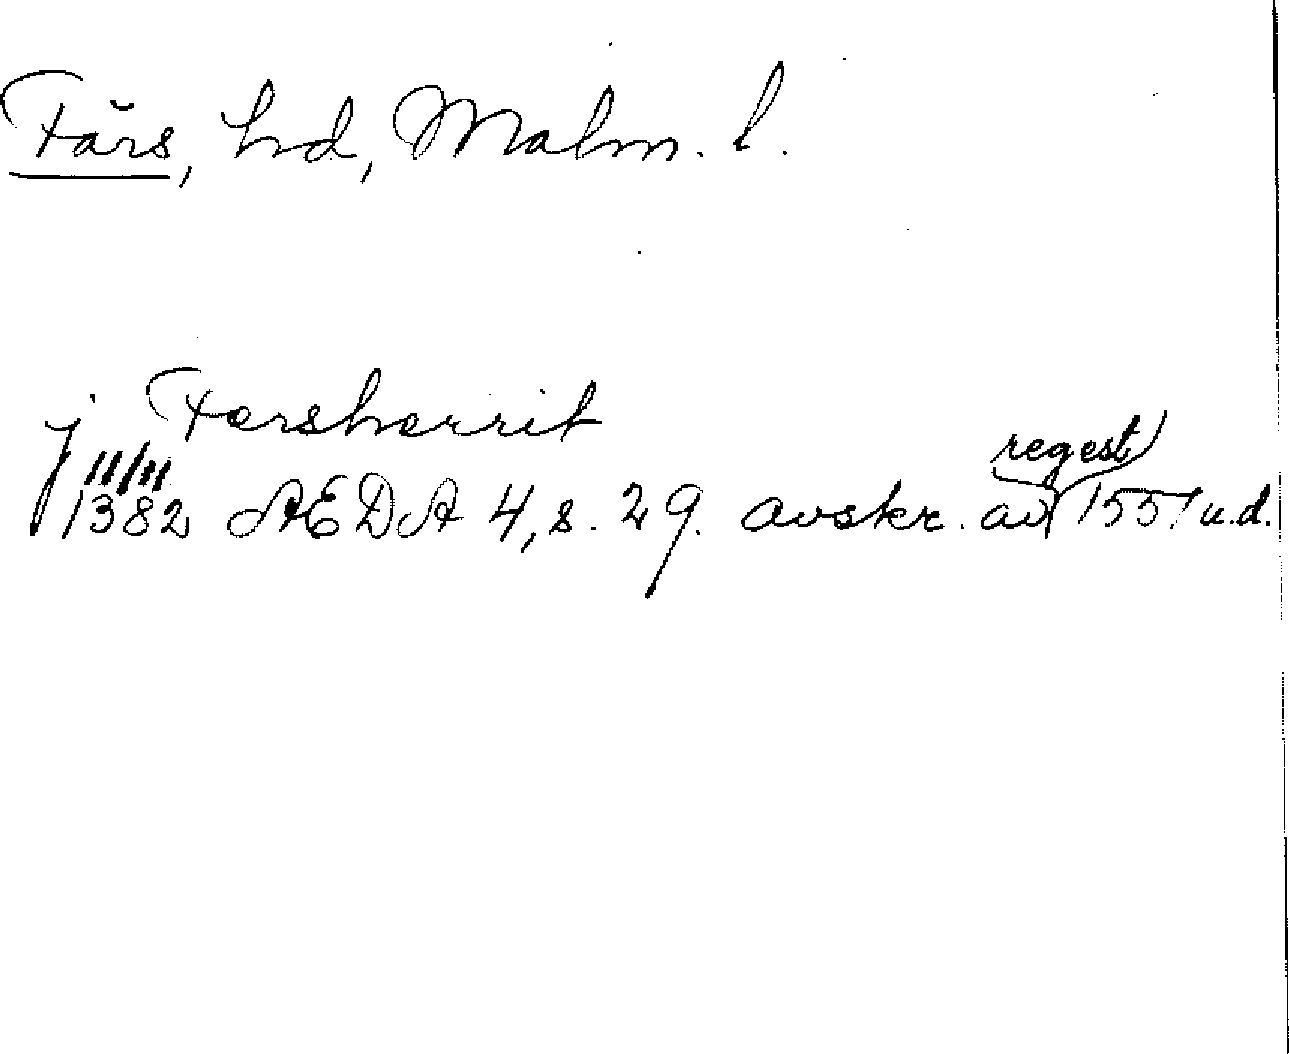 Färs, hd, Malm. l.
j Færshærrit
11/11
1382 ÆDA 4, s. 29. avskr. av regest 1551 u.d.